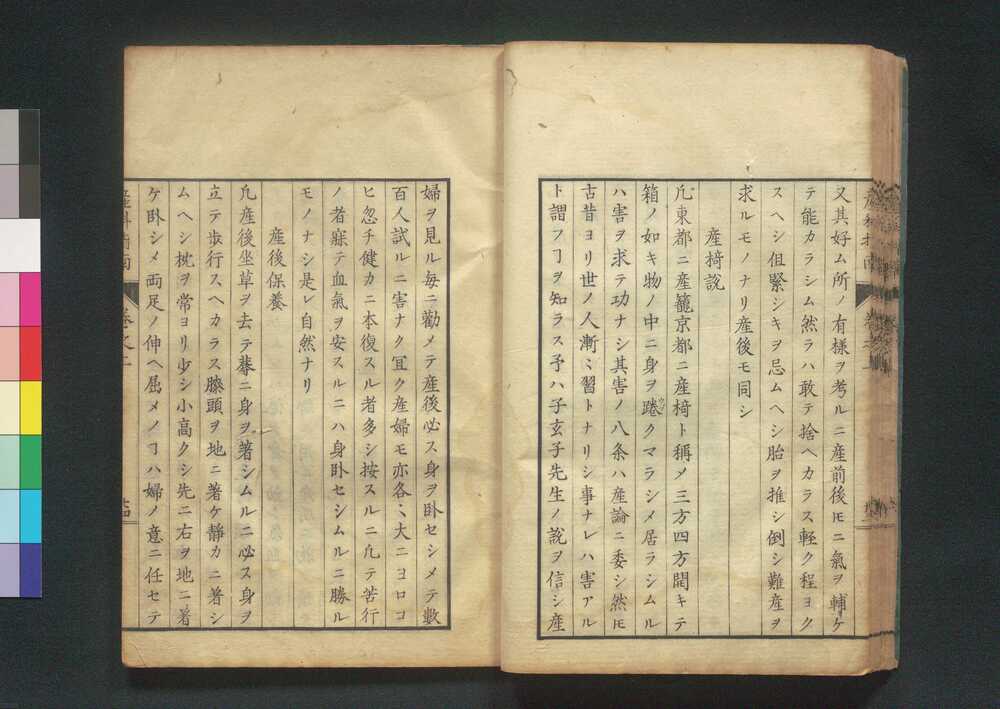 又其好ム所ノ有様ヲ考ルニ産前後𪜈ニ氣ヲ輔ケ
テ能カラシム然ラハ敢テ捨ヘカラス軽ク程ヨク
スヘシ但緊シキヲ忌ムヘシ胎ヲ推シ倒シ難産ヲ
求ルモノナリ産後モ同シ
産椅説
凡東都ニ産籠京都ニ産椅ト稱メ三方四方開キテ
箱ノ如キ物ノ中ニ身ヲ踡クマラシメ居ラシムル
ハ害ヲ求テ功ナシ其害ノ八条ハ産論ニ委シ然𪜈
古昔ヨリ世ノ人漸〻習トナリシ事ナレハ害アル
ト謂フヿヲ知ラス予ハ子玄子先生ノ説ヲ信シ産
婦ヲ見ル毎ニ勸メテ産後必ス身ヲ卧セシメテ數
百人試ルニ害ナク冝ク産婦モ亦各〻大ニヨロコ
ヒ忽チ健カニ本復スル者多シ按スルニ凢テ苦行
ノ者寐テ血氣ヲ安スルニハ身卧セシムルニ勝ル
モノナシ是レ自然ナリ
産後保養
凢産後坐草ヲ去テ蓐ニ身ヲ著シムルニ必ス身ヲ
立テ歩行スヘカラス膝頭ヲ地ニ著ケ静カニ著シ
ムヘシ枕ヲ常ヨリ少シ小高クシ先ニ右ヲ地ニ著
ケ卧シメ両足ノ伸ヘ屈メノヿハ婦ノ意ニ任セテ
産科指南 巻之二